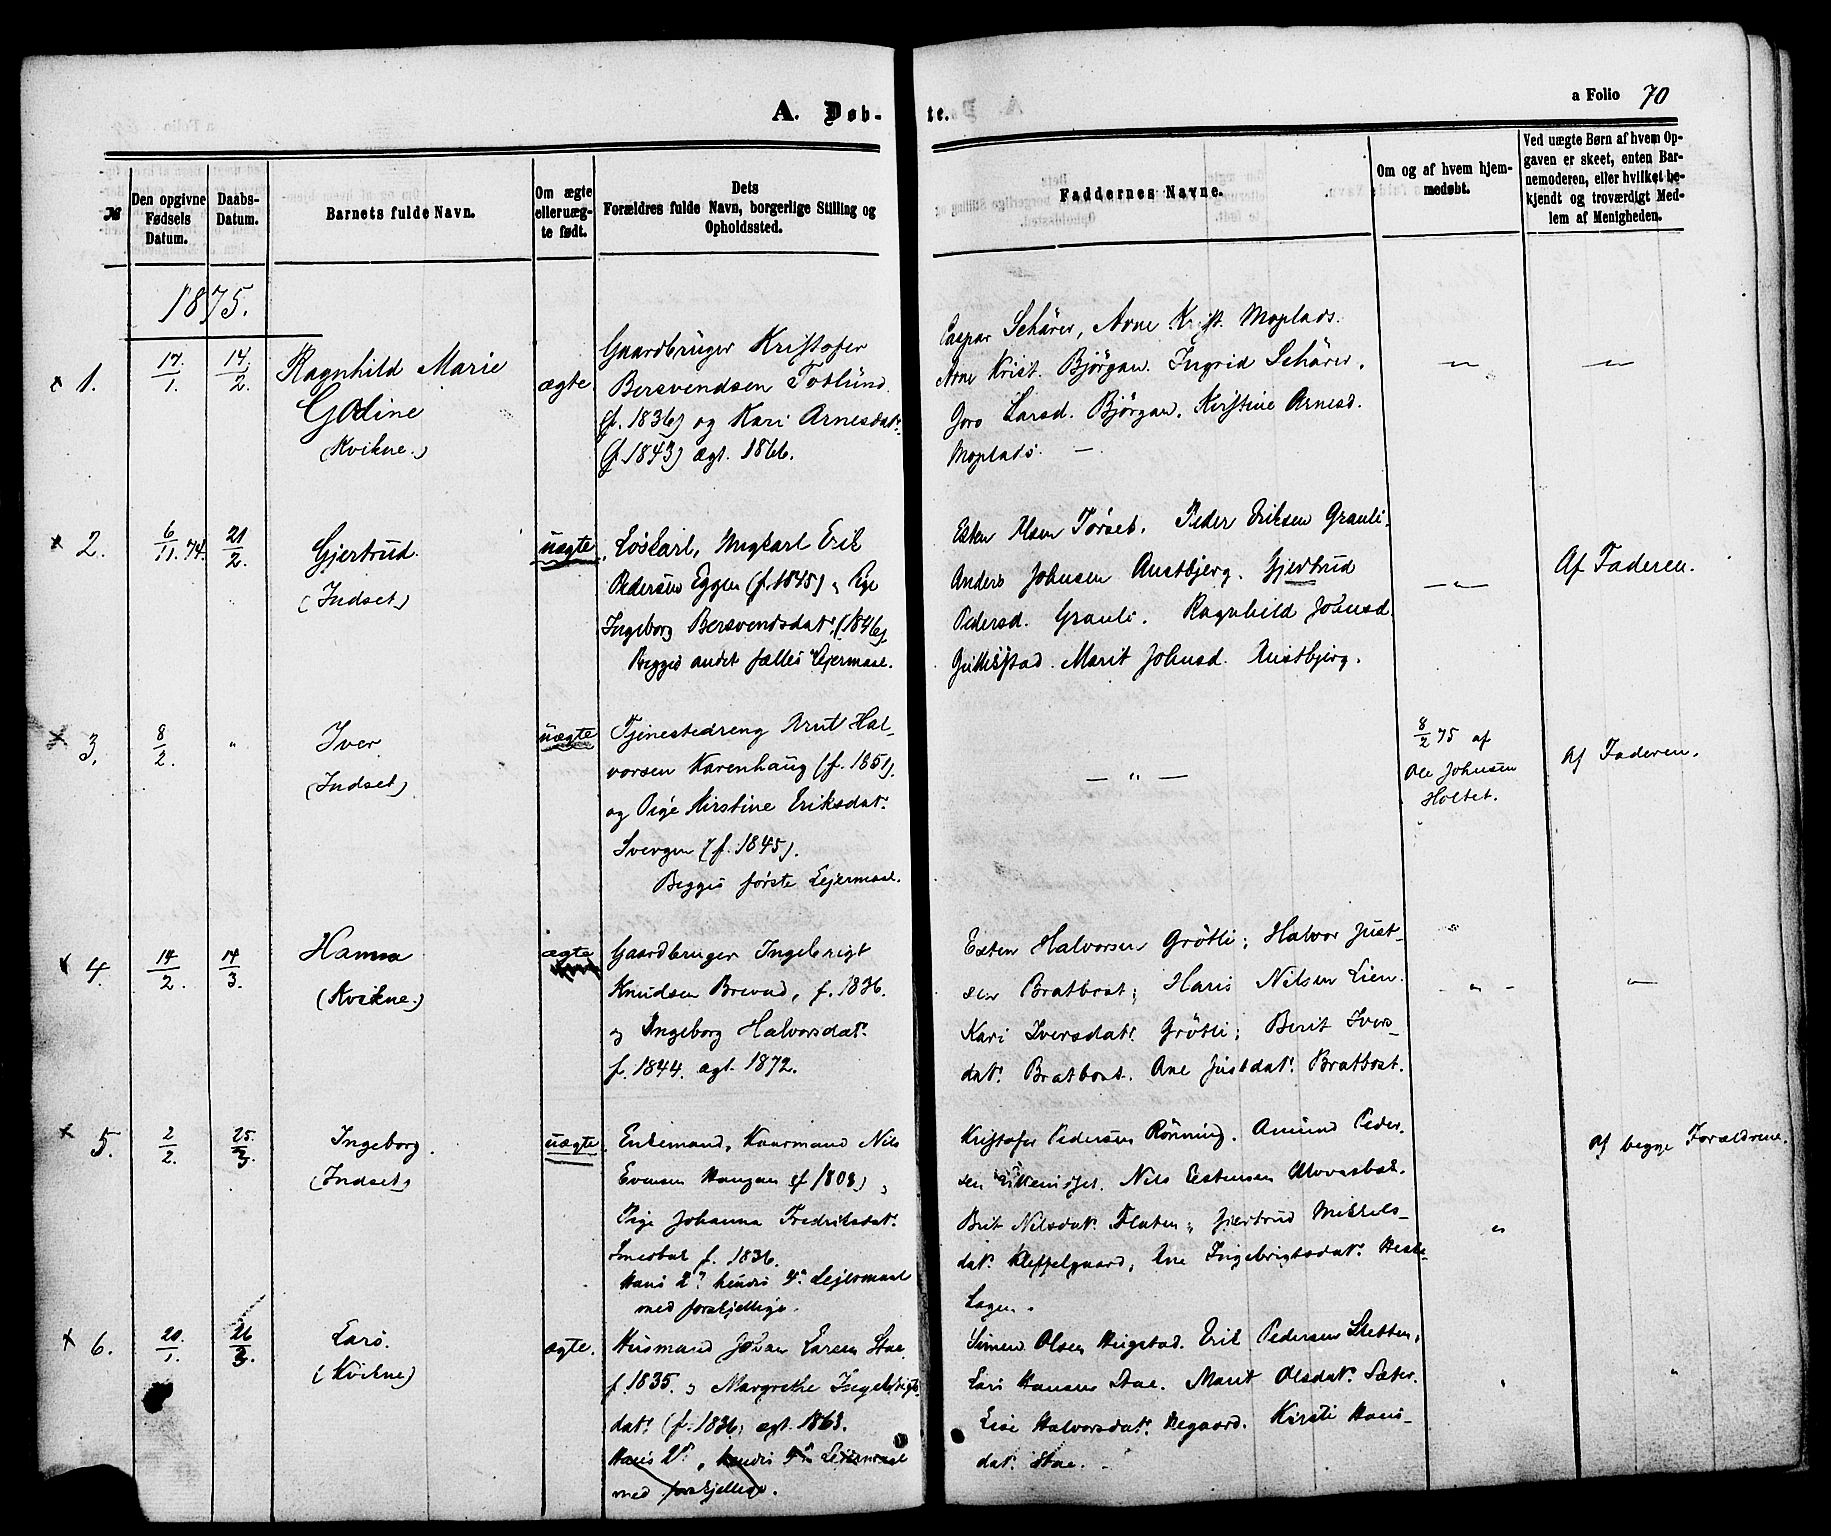 A. Døb-
te.
a Folio 70
№
Den opgivne
Fødsels
Datum.
Daabs-
Datum.
Barnets fulde Navn.
Om ægte
eller uæg-
te født.
Dets
Forældres fulde Navn, borgerlige Stilling og
Opholdssted.
Faddernes Navne.
Om og af hvem hjem-
medøbt.
Ved uægte Børn af hvem Op-
gaven er skeet, enten Bar-
nemoderen, eller hvilket be-
kjendt og troværdigt Med-
lem af Menigheden.
1875.
× 1.
17/1.
14/2.
Ragnhild Marie
Gòline
(Kvikne.)
ægte
Gaardbruger Kristofer
Bersvendsen Totlund
(f. 1836) og Kari Arnesdat.
(f. 1843) ægt. 1866.
Caspar Schärer, Arne Krist. Moplads.
Arne Krist. Bjørgan. Ingrid Schärer.
Goro Larsd. Bjørgan. Kirstine Arnesd.
Moplads. —
— " —
— " —
× 2.
6/11. 74.
21/2.
Gjertrud.
(Indset)
uægte
Løskarl, Ungkarl Erik
Pedersen Eggen (f. 1845) " Pige
Ingeborg Bersvendsdat. (1846)
Begges andet fælles Lejermaal.
Esten Olsen Tørset. Peder Eriksen Grauli.
Anders Johnsen Austbjerg. Gjertrud
Pedersd. Grauli. Ragnhild Johnsd.
Gullikstad. Marit Johnsd. Austbjerg.
— " —
Af Faderen.
× 3.
8/2.
"
Iver
(Indset)
uægte
Tjenestedreng Arnt Hal-
vorsen Karenhaug (f. 1851).
og Pige Kirstine Eriksdat.
Svergen (f. 1845).
Begges første Lejermaal.
— " —
8/2 75 af
Ole Johnsen
Holtet.
Af Faderen.
× 4.
14/2.
14/3.
Hanna
(Kvikne.)
ægte
Gaardbruger Ingebrigt
Knudsen Brevad, f. 1836.
og Ingeborg Halvorsdat.
f. 1844. ægt. 1872.
Esten Halvorsen Grøtli; Halvor Just-
sen Bratbost; Hans Nilsen Lien.
Kari Iversdat. Grøtli; Berit Ivers-
dat. Bratbost. Ane Justdat. Bratbost.
- " -
— " —
× 5.
2/2.
25/3.
Ingeborg.
(Indset)
uægte
Enkemand, Kaarmand Nils
Evensen Haugan (f 1808) "
Pige Johanna Fredriksdat.
f. 1836.
Hans 2det hendes 4de Lejermaal
med forskjellige.
Kristofer Pedersen Rønning. Amund Peder-
sen Nils Estensen
Brit Nilsdat. Flaten " Gjertrud Mikkels-
dat. Kleffelgaard, Ane Ingebrigtsdat.
"
Af begge Forældrene.
× 6.
20/1.
26/3.
Lars.
(Kvikne)
ægte.
Husmand Johan Larsen Stae.
f. 1835. " Margrethe Ingebrigts-
dat. (f. 1836) ægt. 1863.
Hans 2det, hendes 4de Lejermaal
med forskjellige.
Simen Olsen Hugstad. Erik Pedersen Sletten.
Lars Hansen Stae. Marit Olsdat. Sæter.
Lise Halvorsdat. Kirsti Hans-
dat. Stae. -
"
"